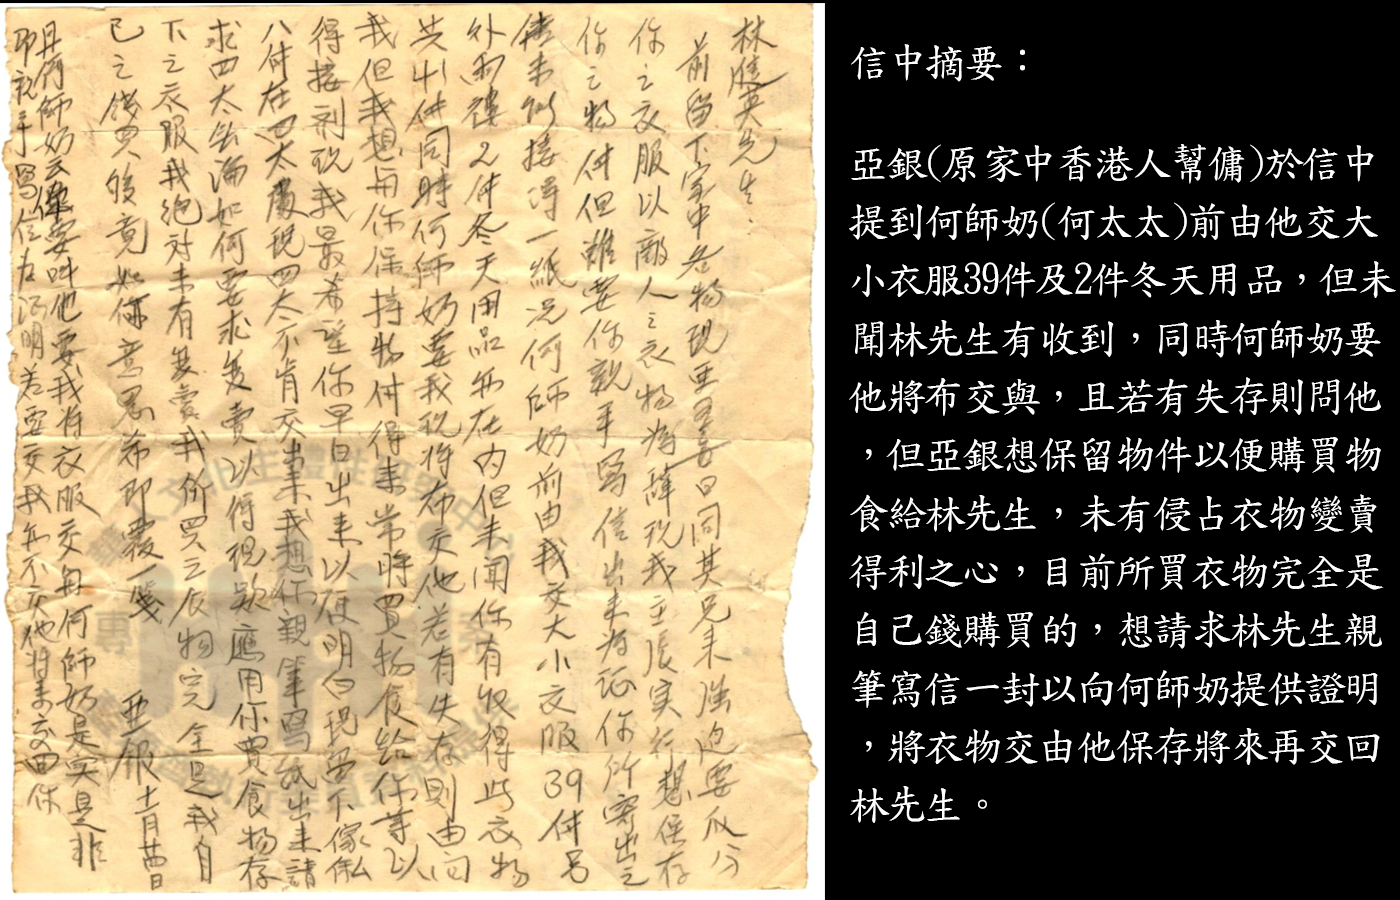 林健英先生：
前留下家中各物現亞日同其兄来強迫要瓜分
你之衣服以敝人之衣物為辞現我主張実行想保存
你之物件但雖要你親手寫信出来為証你所寄出之
未能接得一紙况何師奶前由我交大小衣服39件另
外褸2件冬天用品另在内但未聞你有收得此衣物
共41件同時何師奶要我現将布交他若有失存則由问
我但我想與你保持物件得来常將買物食給你等以
得接剂現我最希望你早日出来以便明白現留下傢俬
八件在四太處現四太不肯交出来我想你親筆寫紙出来請
求四太無論如何要求变賣以得現欵應用你買食物存
下之衣服我絶对未有变賣我所買之衣物完全是我自
已之錢買後竟如你意思希即覆一箋 亞銀
且何師奶云要叫他要我将衣服交與何師奶是实是非
即親手寫信方明若要交我無不交他将来交回你
信中摘要：
亞銀(原家中香港人幫傭)於信中
提到何師奶(何太太)前由他交大
小衣服39件及2件冬天用品，但未
聞林先生有收到，同時何師奶要
他將布交與，且若有失存則問他
，但亞銀想保留物件以便購買物
食給林先生，未有侵占衣物變賣
得利之心，目前所買衣物完全是
自己錢購買的，想請求林先生親
筆寫信一封以向何師奶提供證明
，將衣物交由他保存將來再交回
林先生。